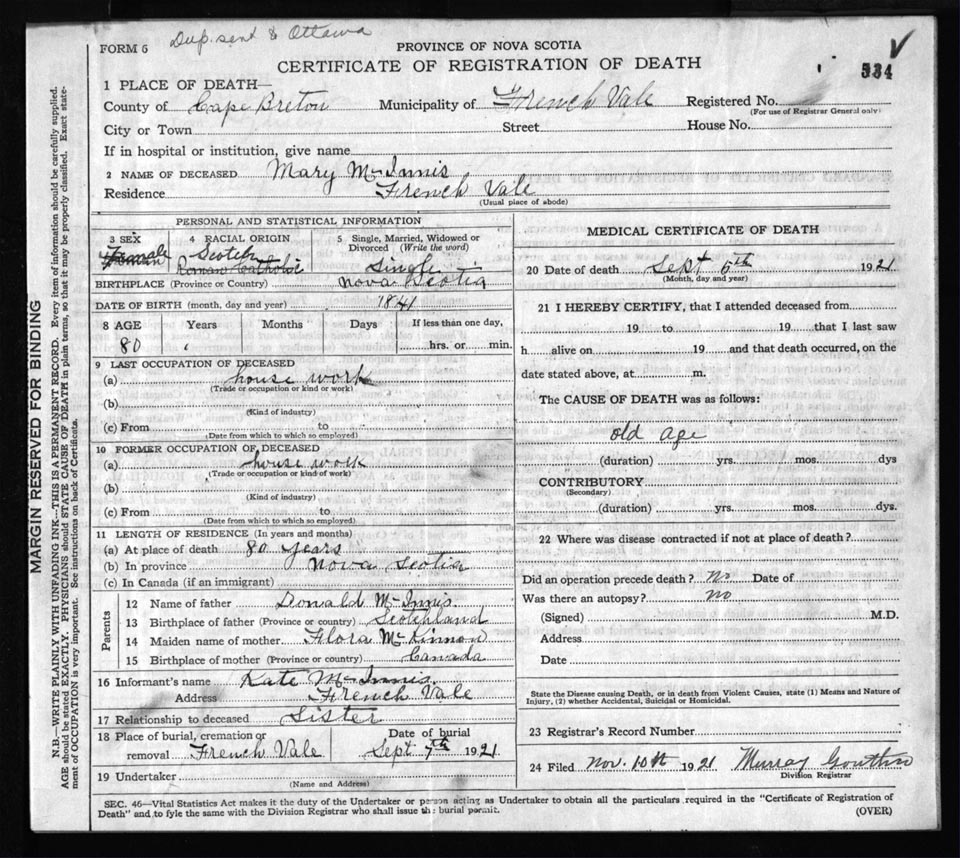 FORM 6 Dup. sent to Ottawa
PROVINCE OF NOVA SCOTIA
CERTIFICATE OF REGISTRATION OF DEATH
534
1 PLACE OF DEATH—
County of Cape Breton Municipality of French Vale Registered No.
(For use of Registrar General only)
City or Town Street House No.
If in hospital or institution, give name
2 NAME OF DECEASED Mary McInnis
Residence French Vale
(Usual place of abode)
PERSONAL AND STATISTICAL INFORMATION
3 SEX 4 RACIAL ORIGIN 5 Single, Married, Widowed or Divorced (Write the word)
Female Scotch Single
Roman Catholic
BIRTHPLACE (Province or Country) Nova Scotia
DATE OF BIRTH (month, day and year) 1841
8 AGE Years Months Days If less than one day,
80 hrs. or min.
9 LAST OCCUPATION OF DECEASED
(a) house work
(Trade or occupation or kind or work)
(b)
(Kind of industry)
(c) From to
(Date from which to which so employed)
10 FORMER OCCUPATION OF DECEASED
(a) house work
(Trade or occupation or kind of work)
(b)
(Kind of industry)
(c) From to
(Date from which to which so employed)
11 LENGTH OF RESIDENCE (In years and months)
(a) At place of death 80 years
(b) In province Nova Scotia
(c) In Canada (if an immigrant)
Parents
12 Name of father Donald McInnis.
13 Birthplace of father (Province or country) Scotchland
14 Maiden name of mother Flora McKinnon
15 Birthplace of mother (Province or country) Canada
16 Informant's name Kate McInnis.
Address French Vale
17 Relationship to deceased Sister
18 Place of burial, cremation or removal French Vale Date of burial Sept 7th 1921
19 Undertaker
(Name and Address)
MEDICAL CERTIFICATE OF DEATH
20 Date of death Sept 5th 1921
(Month, day and year)
21 I HEREBY CERTIFY, that I attended deceased from
19 to 19 that I last saw
h alive on 19 and that death occurred, on the
date stated above, at m.
The CAUSE OF DEATH was as follows:
old age
(duration) yrs. mos. dys
CONTRIBUTORY
(Secondary)
(duration) yrs. mos. dys.
22 Where was disease contracted if not at place of death?
Did an operation precede death? No Date of
Was there an autopsy? no
(Signed) M.D.
Address
Date
State the Disease causing Death, or in death from Violent Causes, state (1) Means and Nature of
Injury, (2) whether Accidental, Suicidal or Homicidal.
23 Registrar's Record Number
24 Filed Nov. 10th 1921 Murray
Division Registrar
SEC. 46—Vital Statistics Act makes it the duty of the Undertaker or person acting as Undertaker to obtain all the particulars required in the "Certificate of Registration of
Death" and to fyle the same with the Division Registrar who shall issue the burial permit. (OVER)
MARGIN RESERVED FOR BINDING
N.B.—WRITE PLAINLY WITH UNFADING INK—THIS IS A PERMANENT RECORD. Every item of information should be carefully supplied.
AGE should be stated EXACTLY. PHYSICIANS should STATE CAUSE OF DEATH in plain terms, so that it may be properly classified. Exact state-
ment of OCCUPATION is very important. See instructions on back of Certificate.